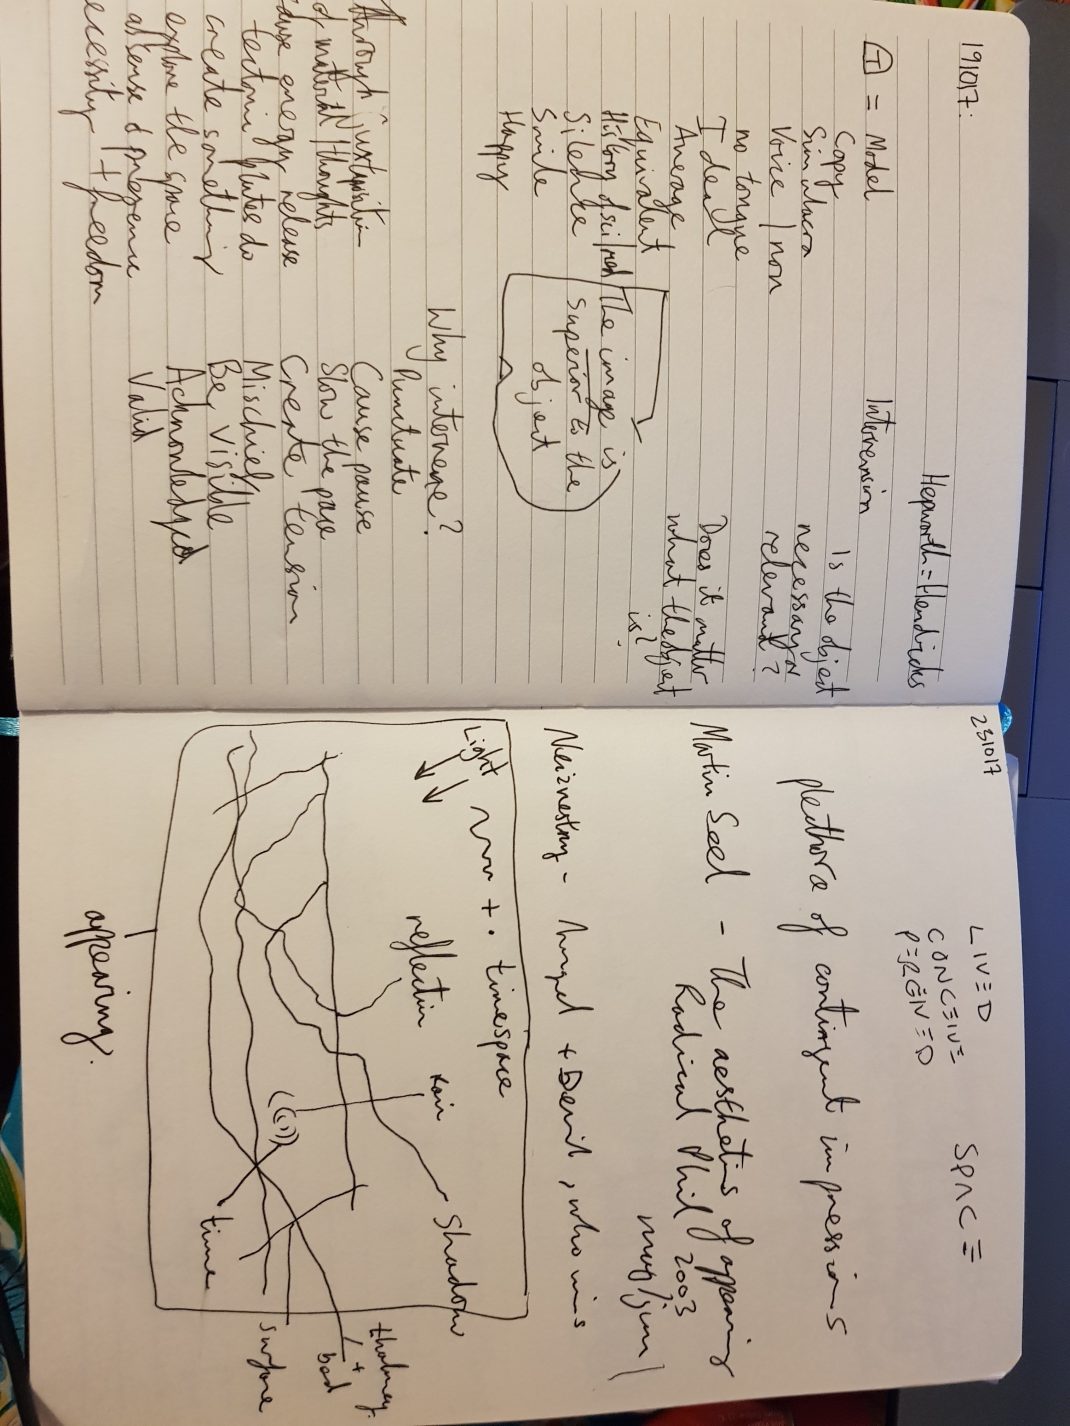 191017:
Hepworth = Hendricks
T = Model
Intervension
Copy
Is the object
Simulacra
necessary or
Voice / non
relevant?
no tongue
Ideal
Does it matter
Average
what the object
Equivalent
is?
History of
Silence
Smile
Happy
The image is
superior to the
object
Why intervene?
Punctuate
Cause pause
Slow the pace
Create tension
Mischief
Be, visible
Acknowledged
Valid
through juxtaposition
of material / thoughts
energy release
tectonic plates do
create something
explore the space
absence & presence
+ freedom
231017
LIVED
CONCEIVE
PERCEIVED
SPACE
plethora of contingent impressions
Martin Seel - The aesthetics of appearing
Radical Phil 2003
may/jun
- hungd + Devil, who wins
Light
+ . timespace
reflection
rain
Shadow
time
surface
+ bed
appearing.